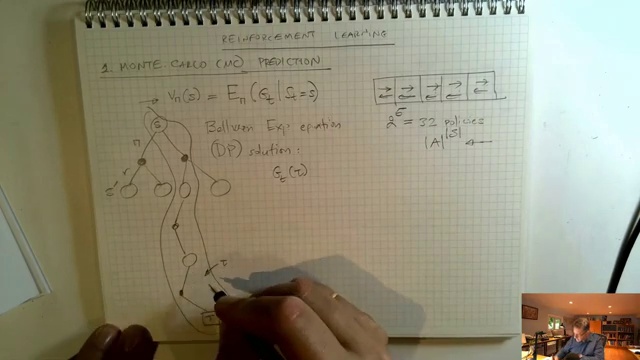 REINFORCEMENT LEARNING
1. MONTE CARLO (MC) PREDICTION
→ V_π(s) = E_π(G_t | S_t = s)
Bellman Exp. equation
(DP) solution:
G_t(τ)
2^5 = 32 policies
|A|^|S| ←
S
π
r
s'
τ
T